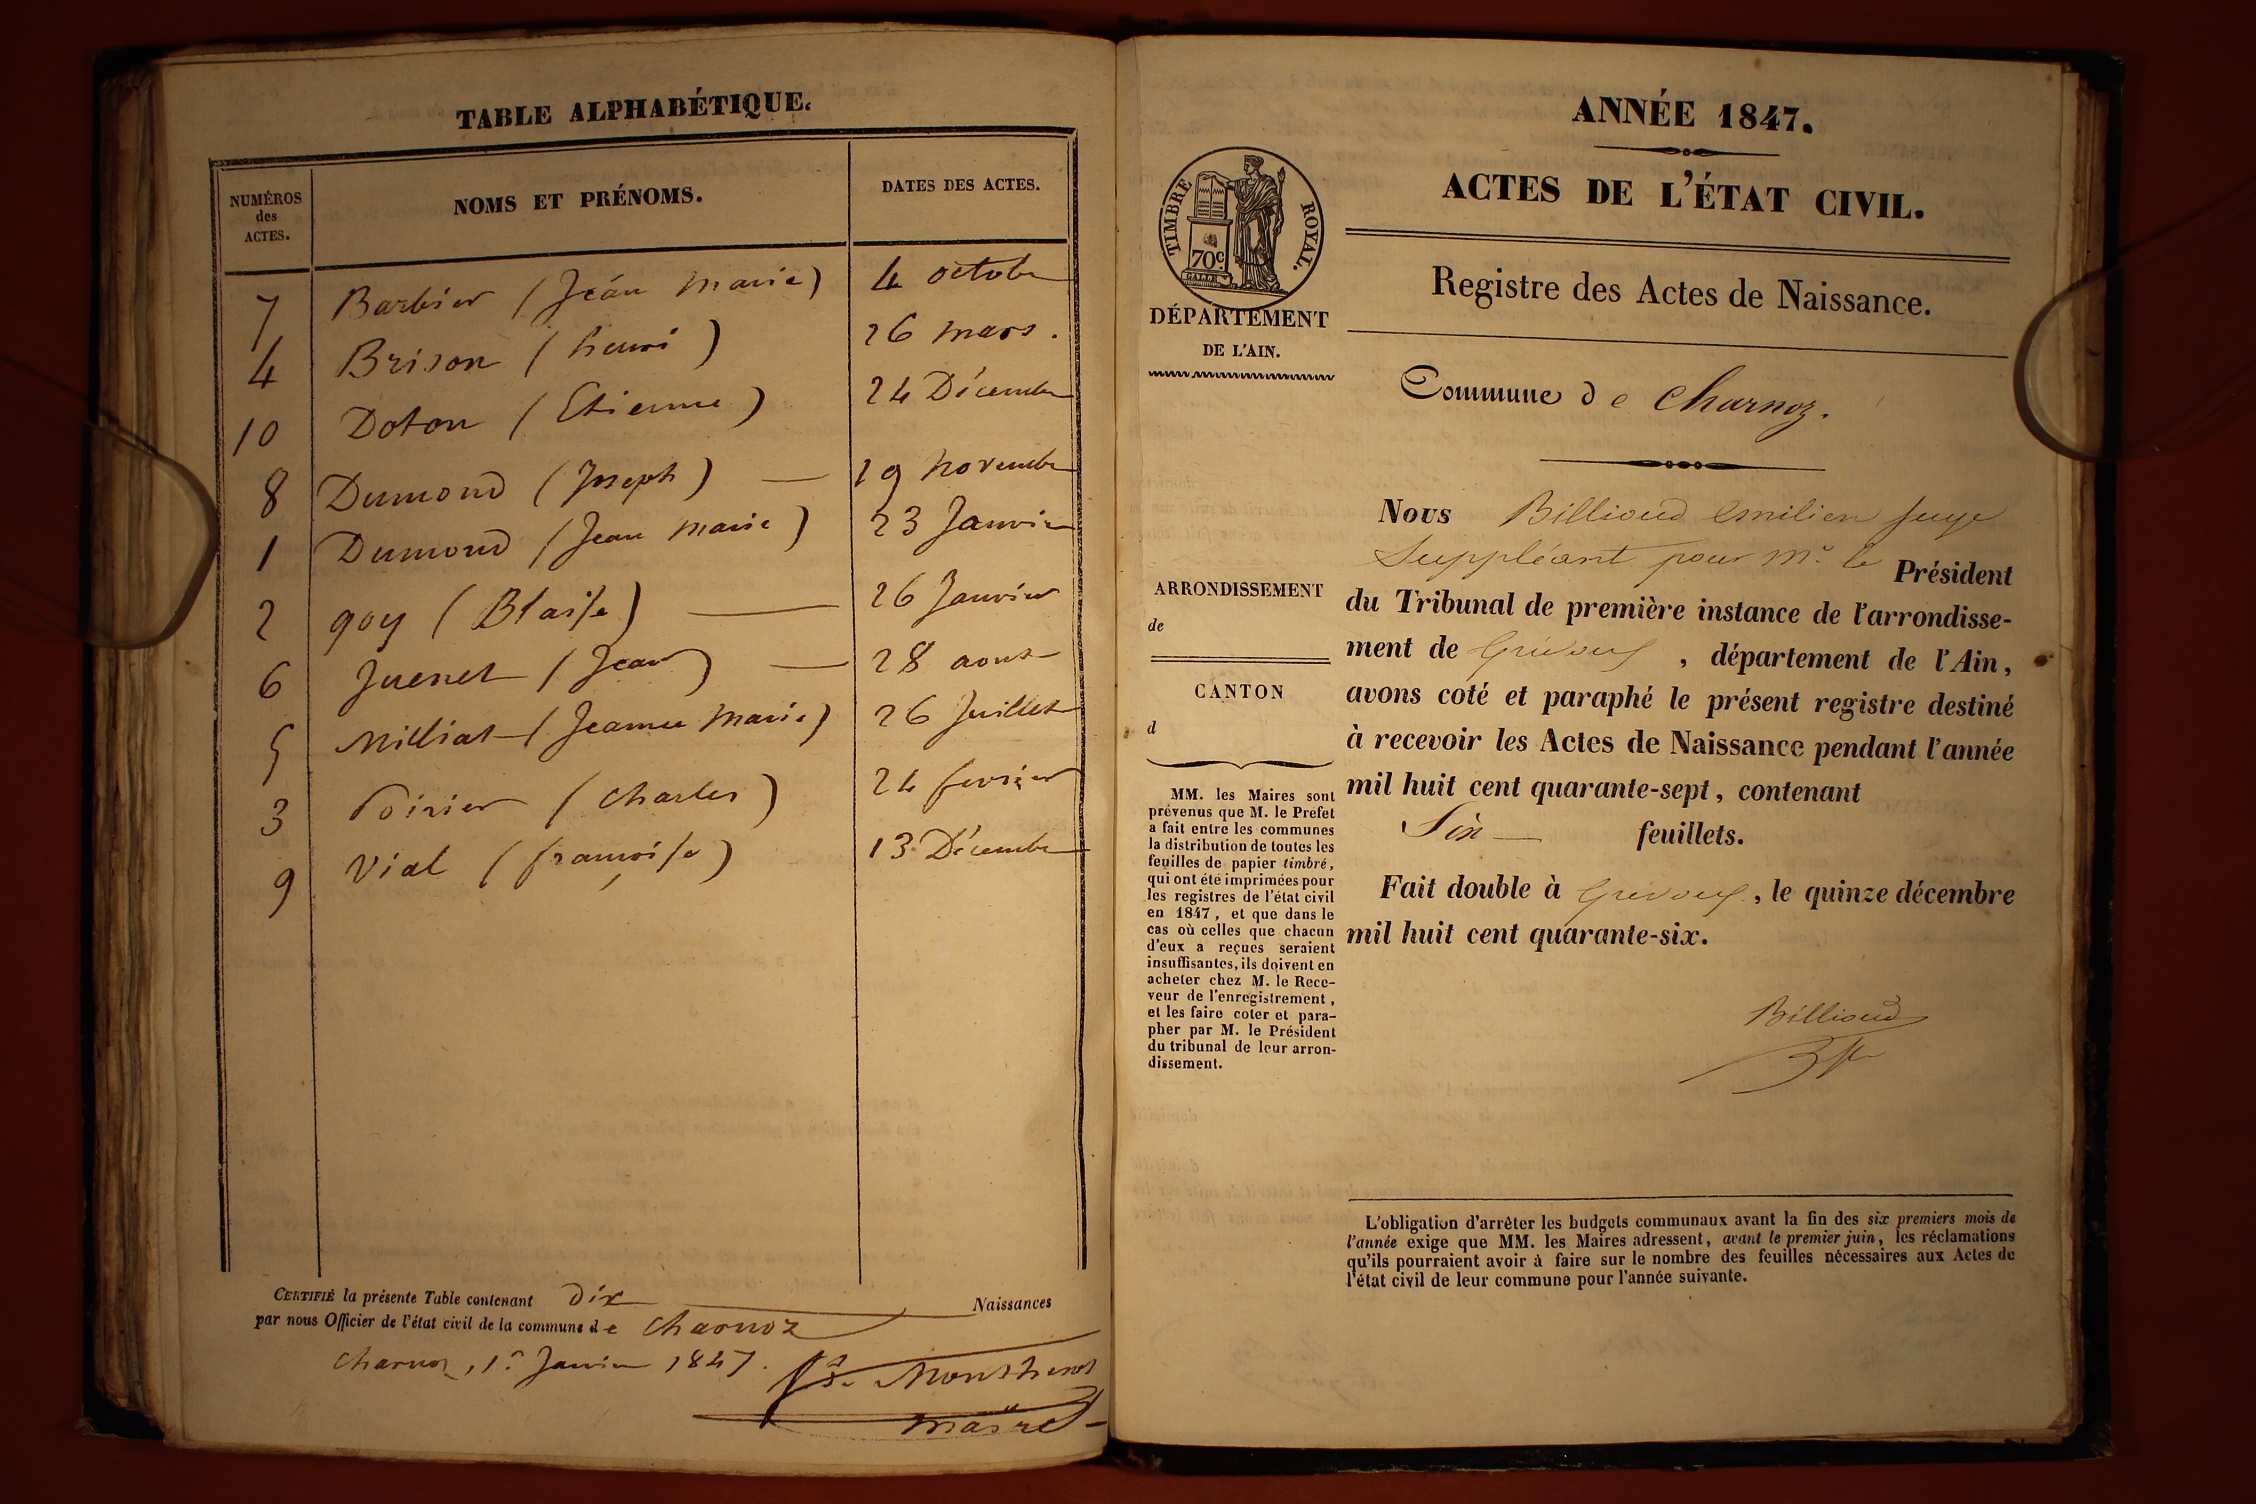 TABLE ALPHABÉTIQUE.
NUMÉROS
des
ACTES.
NOMS ET PRÉNOMS.
DATES DES ACTES.
7 Barbier (Jean Marie) 4 octobre
4 Brison (henri) 26 mars.
10 Doton (Etienne) 24 Décembre
8 Dumond (Joseph) — 19 novembre
1 Dumond (Jean Marie) 23 Janvier
2 goy (Blaise) — 26 Janvier
6 Juenet (Jean) — 28 aout
5 Milliat (Jeanne Marie) 26 Juillet
3 Poirier (Charles) 24 fevrier
9 Vial (françoise) 13 Décembre
CERTIFIÉ la présente Table contenant Dix Naissances
par nous Officier de l'état civil de la commune de Charnoz
Charnoz, 1er Janvier 1847.
Maire
ANNÉE 1847.
ACTES DE L'ÉTAT CIVIL.
Registre des Actes de Naissance.
TIMBRE ROYAL.
70c
GALLE
DÉPARTEMENT
DE L'AIN.
Commune de Charnoz.
ARRONDISSEMENT
de
CANTON
d
MM. les Maires sont
prévenus que M. le Préfet
a fait entre les communes
la distribution de toutes les
feuilles de papier timbré,
qui ont été imprimées pour
les registres de l'état civil
en 1847, et que dans le
cas où celles que chacun
d'eux a reçues seraient
insuffisantes, ils doivent en
acheter chez M. le Rece-
veur de l'enregistrement,
et les faire coter et para-
pher par M. le Président
du tribunal de leur arron-
dissement.
Nous Billioud Emilien Juge
Suppléant pour Mr. le Président
du Tribunal de première instance de l'arrondisse-
ment de Trévoux, département de l'Ain,
avons coté et paraphé le présent registre destiné
à recevoir les Actes de Naissance pendant l'année
mil huit cent quarante-sept, contenant
Six — feuillets.
Fait double à Trévoux, le quinze décembre
mil huit cent quarante-six.
Billioud
L'obligation d'arrêter les budgets communaux avant la fin des six premiers mois de
l'année exige que MM. les Maires adressent, avant le premier juin, les réclamations
qu'ils pourraient avoir à faire sur le nombre des feuilles nécessaires aux Actes de
l'état civil de leur commune pour l'année suivante.